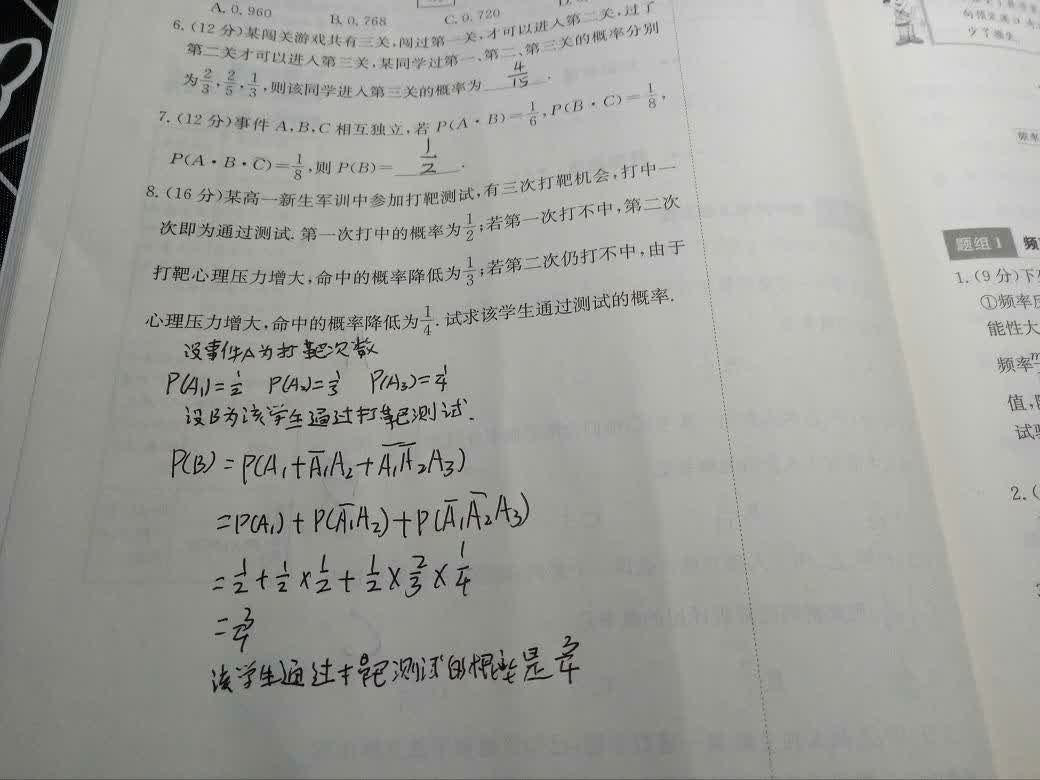 A. 0.960
B. 0.768
C. 0.720
6. (12 分)某闯关游戏共有三关,闯过第一关,才可以进入第二关,过了
第二关才可以进入第三关,某同学过第一、第二、第三关的概率分别
为2/3, 2/5, 1/3,则该同学进入第三关的概率为 4/15 .
7. (12 分)事件 A,B,C 相互独立,若 P(A·B)=1/6, P(B̄·C)=1/8,
P(A·B·C̄)=1/8,则 P(B)= 1/2 .
8. (16 分)某高一新生军训中参加打靶测试,有三次打靶机会,打中一
次即为通过测试. 第一次打中的概率为1/2;若第一次打不中,第二次
打靶心理压力增大,命中的概率降低为1/3;若第二次仍打不中,由于
心理压力增大,命中的概率降低为1/4. 试求该学生通过测试的概率.
设事件A为打靶次数
P(A₁)=1/2 P(A₂)=1/3 P(A₃)=1/4
设B为该学生通过打靶测试.
P(B) = P(A₁+Ā₁A₂+Ā₁Ā₂A₃)
=P(A₁)+P(Ā₁A₂)+P(Ā₁Ā₂A₃)
=1/2+1/2×1/2+1/2×2/3×1/4
=3/4
该学生通过打靶测试的概率是3/4
题组1 频
1. (9 分)下
①频率反
能性大
频率
值,
试验
2. (